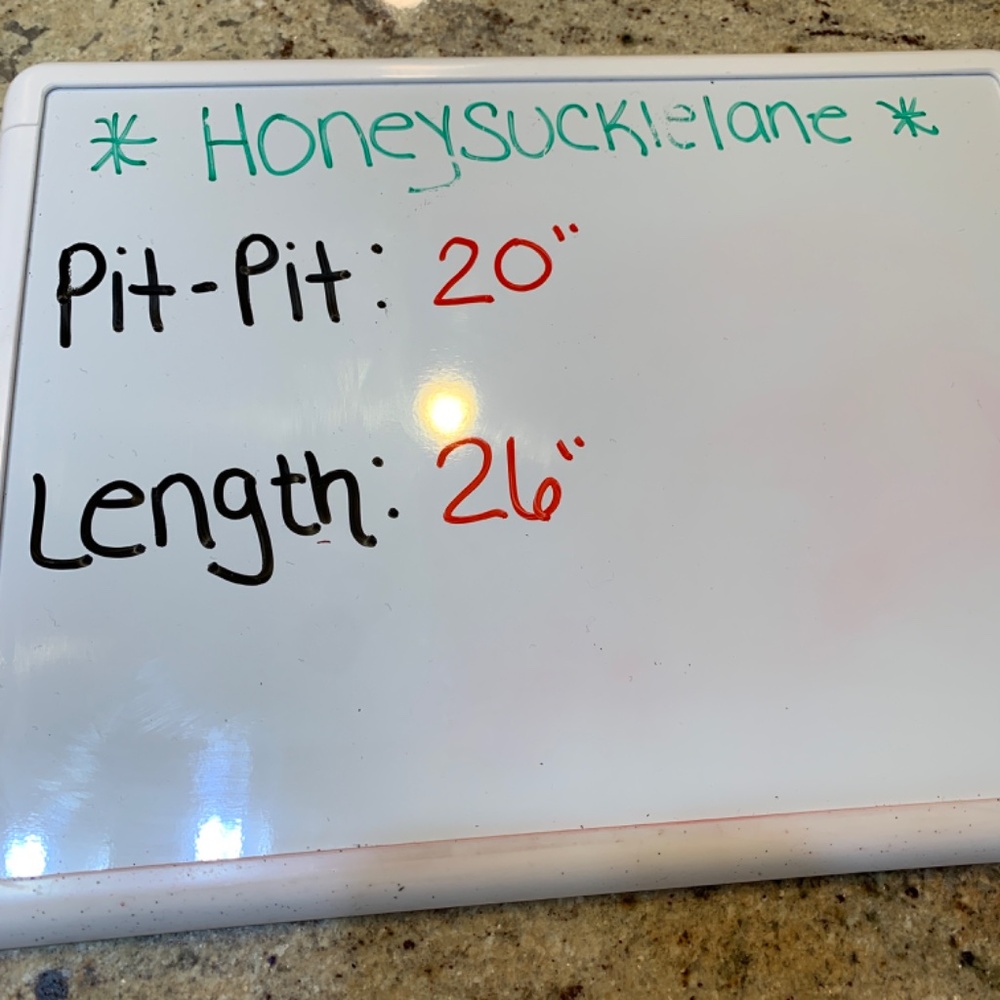 * Honeysucklelane *
Pit-Pit: 20"
Length: 26"